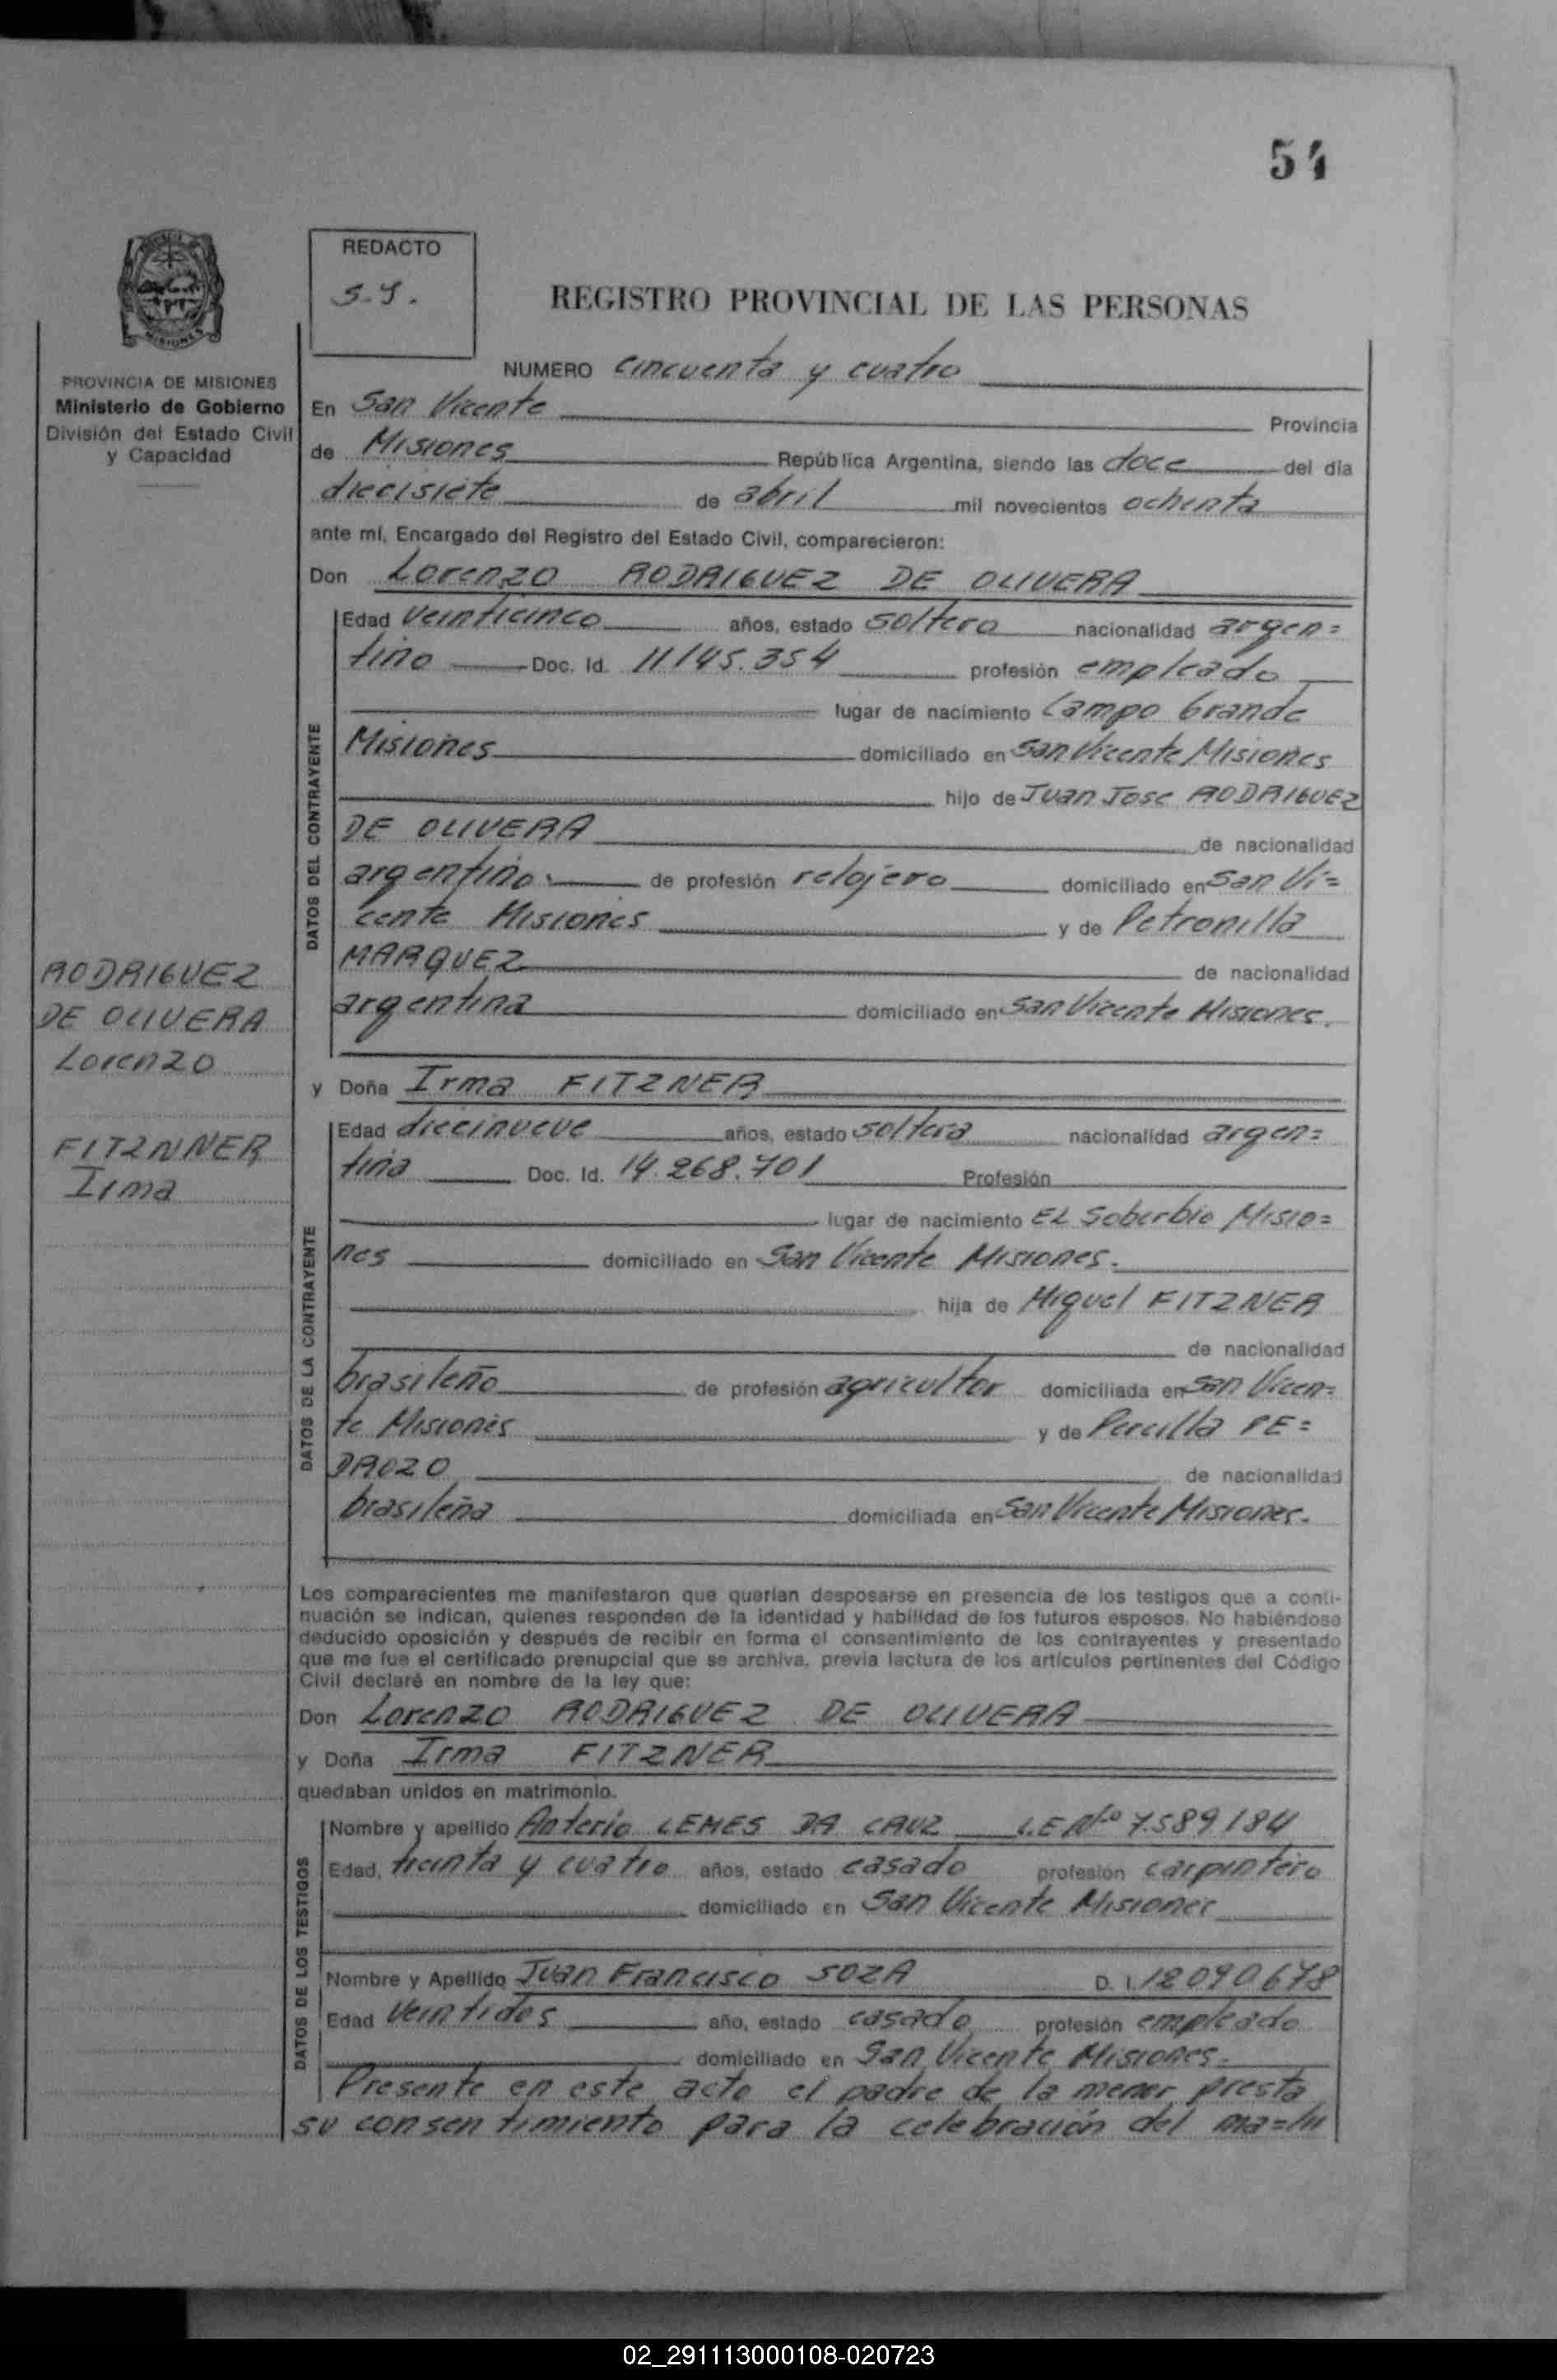 54
REDACTO
S.S.
REGISTRO PROVINCIAL DE LAS PERSONAS
MISIONES
PROVINCIA DE MISIONES
Ministerio de Gobierno
División del Estado Civil
y Capacidad
NUMERO cincuenta y cuatro
En San Vicente Provincia
de Misiones República Argentina, siendo las doce del día
diecisiete de abril mil novecientos ochenta
ante mí, Encargado del Registro del Estado Civil, comparecieron:
Don Lorenzo RODRIGUEZ DE OLIVERA
DATOS DEL CONTRAYENTE
Edad veinticinco años, estado soltero nacionalidad argen=
tino Doc. Id. 11.145.354 profesión empleado
lugar de nacimiento Campo Grande
Misiones domiciliado en San Vicente Misiones
hijo de Juan Jose RODRIGUEZ
DE OLIVERA de nacionalidad
argentino. de profesión relojero domiciliado en San Vi=
cente Misiones y de Petronilla
MARQUEZ de nacionalidad
argentina domiciliado en San Vicente Misiones.
RODRIGUEZ
DE OLIVERA
Lorenzo
FITZNNER
Irma
y Doña Irma FITZNER
DATOS DE LA CONTRAYENTE
Edad diecinueve años, estado soltera nacionalidad argen=
tina Doc. Id. 14.268.701 Profesión
lugar de nacimiento EL Soberbio Misio=
nes domiciliado en San Vicente Misiones.
hija de Miguel FITZNER
de nacionalidad
brasileño de profesión agricultor domiciliada en San Vicen=
te Misiones y de Percilla PE=
DROZO de nacionalidad
brasileña domiciliada en San Vicente Misiones.
Los comparecientes me manifestaron que querían desposarse en presencia de los testigos que a conti-
nuación se indican, quienes responden de la identidad y habilidad de los futuros esposos. No habiéndose
deducido oposición y después de recibir en forma el consentimiento de los contrayentes y presentado
que me fue el certificado prenupcial que se archiva, previa lectura de los artículos pertinentes del Código
Civil declaré en nombre de la ley que:
Don Lorenzo RODRIGUEZ DE OLIVERA
y Doña Irma FITZNER
quedaban unidos en matrimonio.
DATOS DE LOS TESTIGOS
Nombre y apellido Anterio LEMES DA CRUZ L.E Nº 7.589.184
Edad, treinta y cuatro años, estado casado profesión carpintero
domiciliado en San Vicente Misiones
Nombre y Apellido Juan Francisco SOZA D. I. 12.090.678
Edad veintidos año, estado casado profesión empleado
domiciliado en San Vicente Misiones.
Presente en este acto el padre de la menor presta
su consentimiento para la celebración del ma=///
02_291113000108-020723